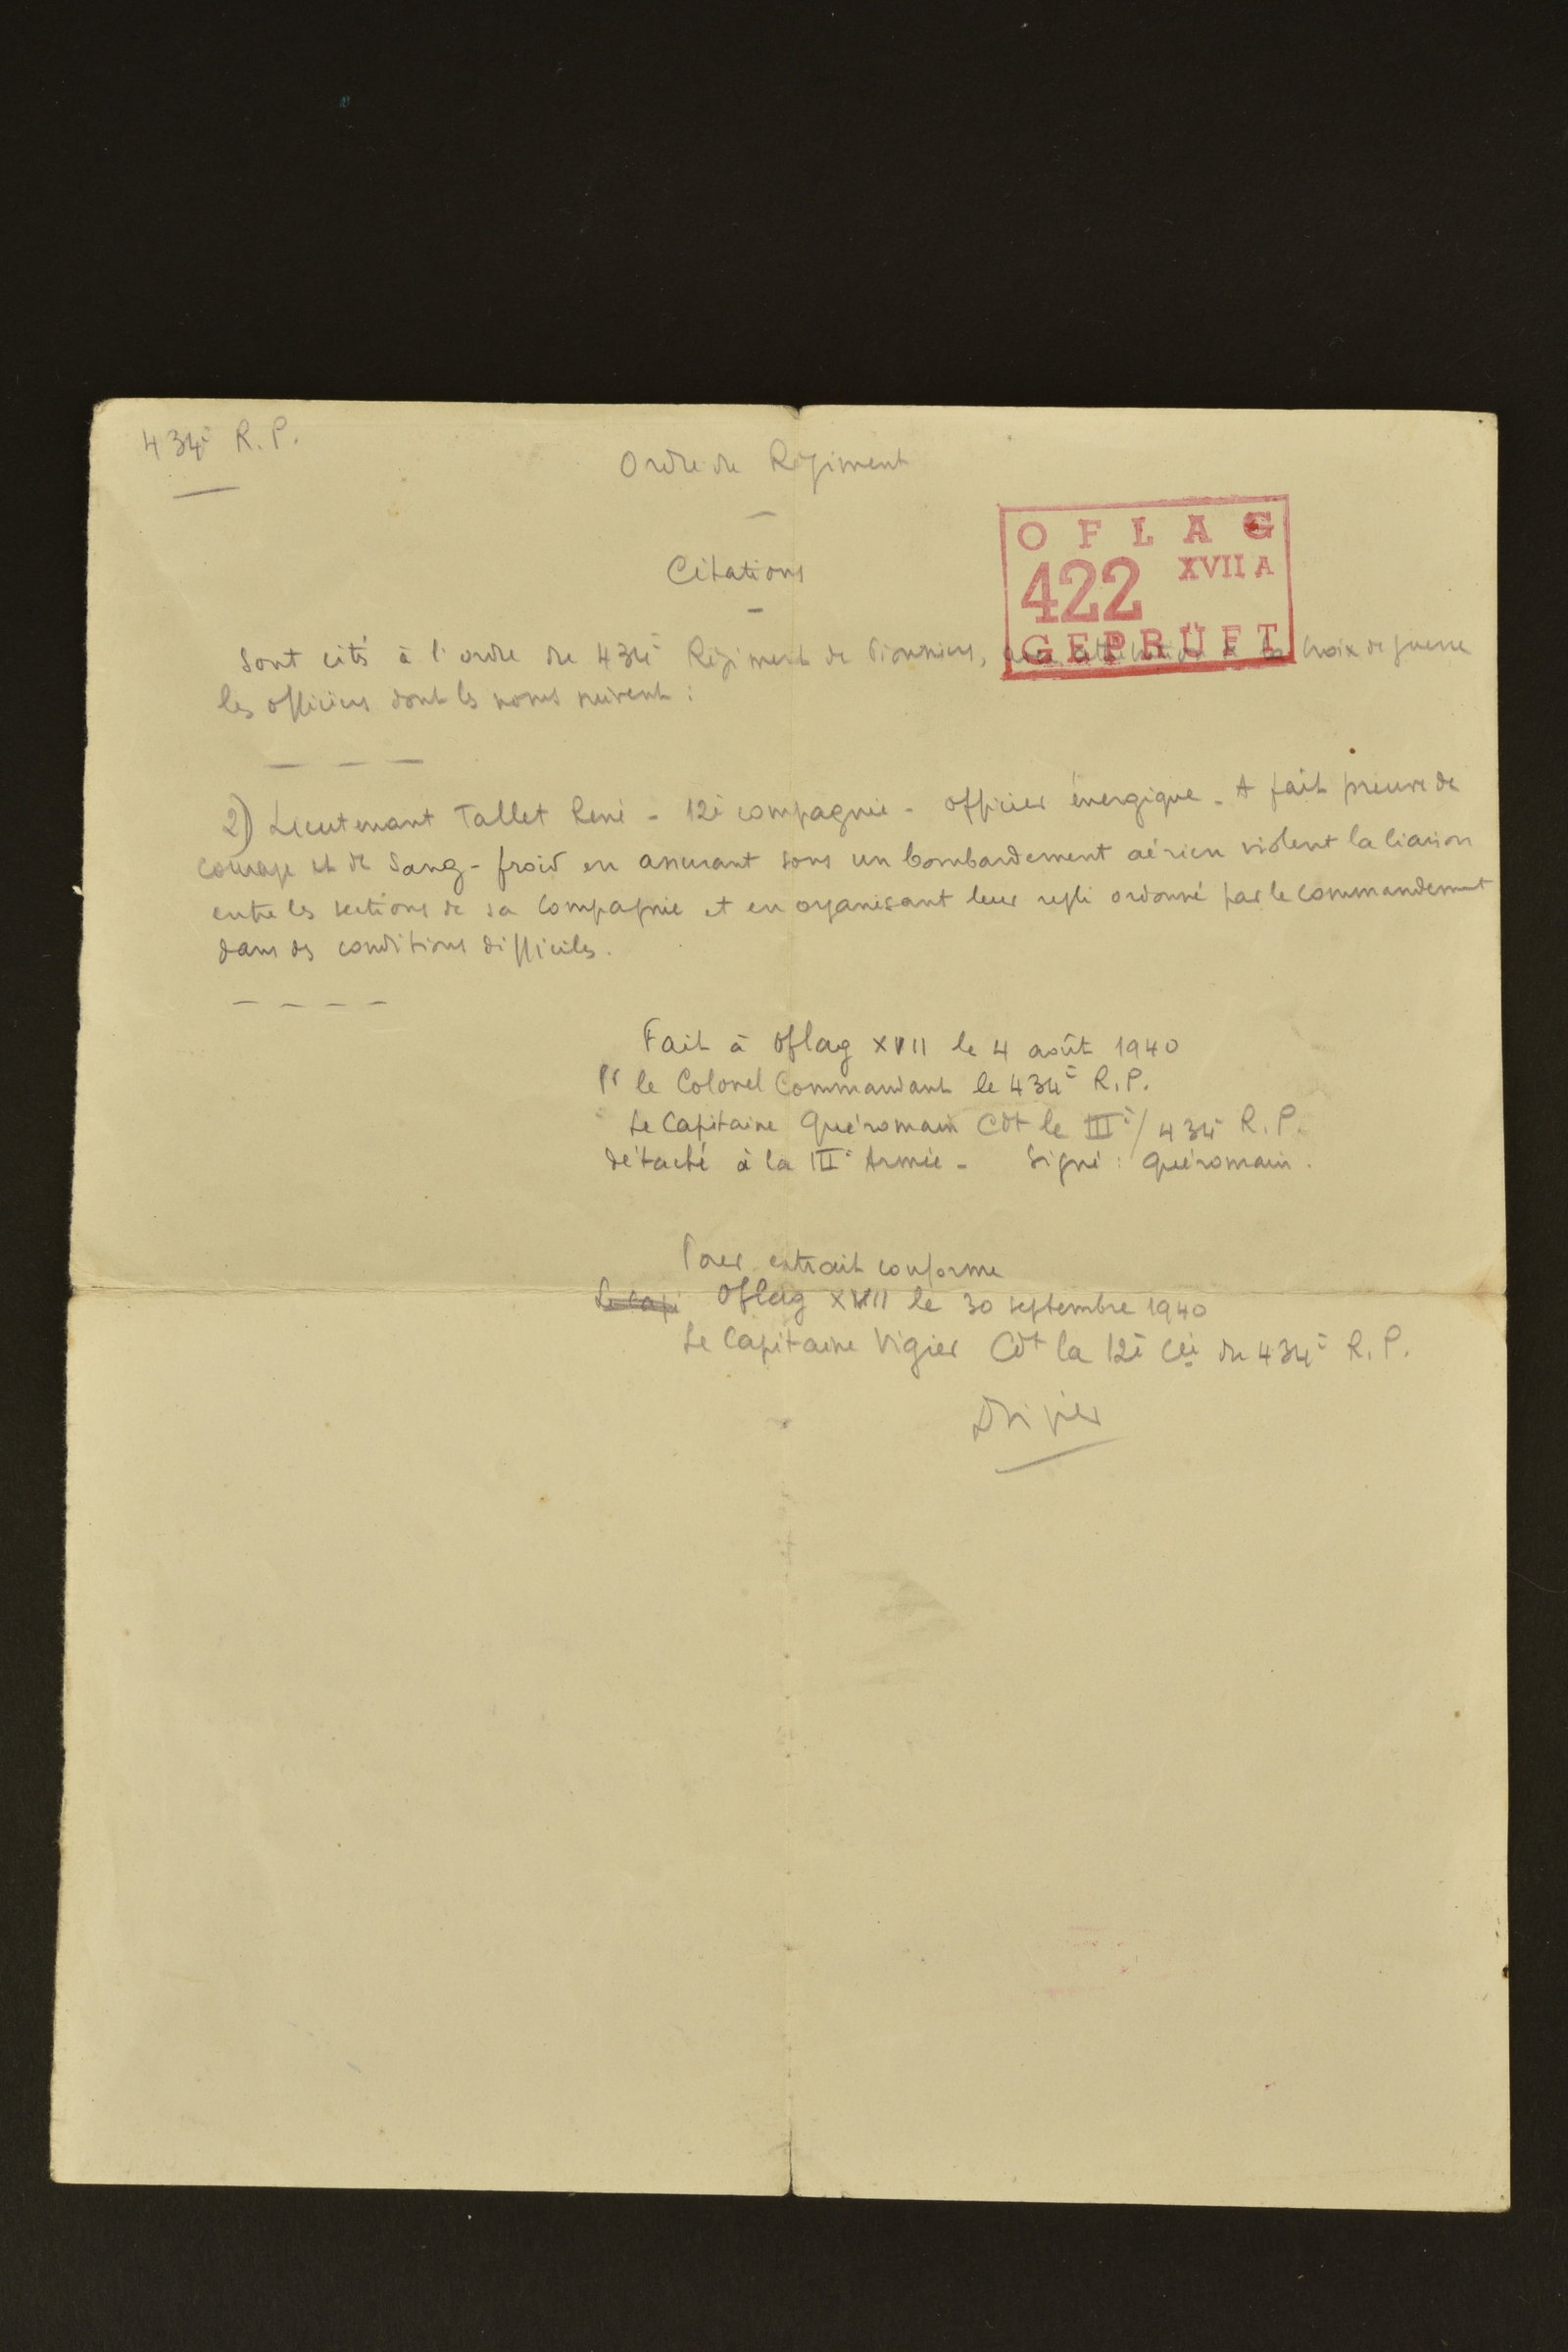 434è R.P.
Ordre du Régiment
Citations
OFLAG
422 XVII A
GEPRÜFT
Sont cités à l'ordre du 434è Régiment de Pionniers, avec attribution de la Croix de guerre
les officiers dont les noms suivent :
2) Lieutenant Tallet René - 12è compagnie - officier énergique - A fait preuve de
courage et de sang-froid en assurant sous un bombardement aérien violent la liaison
entre les sections de sa compagnie et en organisant leur repli ordonné par le commandement
dans des conditions difficiles.
Fait à Oflag XVII le 4 août 1940
Pr le Colonel Commandant le 434è R.P.
Le Capitaine Quéromain Cdt le IIIè/434è R.P.
détaché à la IIIè Armée - Signé : Quéromain.
Pour extrait conforme
Le Capi Oflag XVII le 30 septembre 1940
Le Capitaine Vigier Cdt la 12è Cie du 434è R.P.